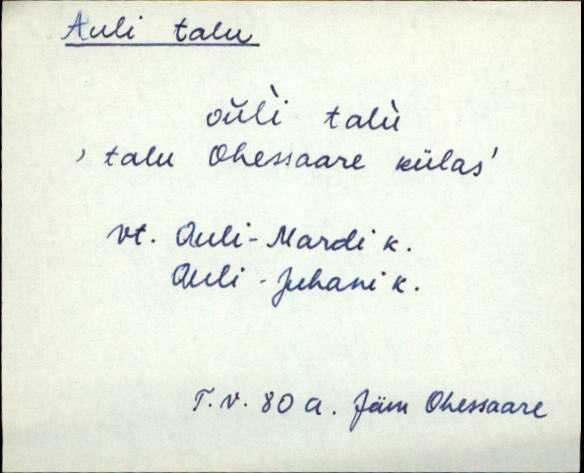 Auli talu
oŭl̀i talù
, talu Ohessaare külas'
vt. Auli-Mardi k.
Auli-Juhani k.
T.V. 80 a. Jäm Ohessaare